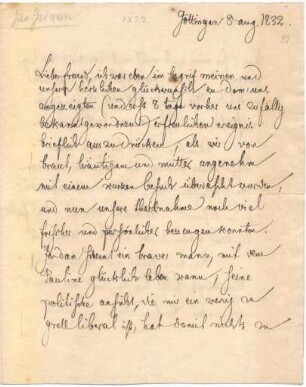 Göttingen 8 aug. 1832.
Liebe freundin, ich war eben im begriff meinen und
unsern herzlichen glückwunsch zu dem uns
angezeigten (und erst 8 tage vorher uns zufällig
bekant gewordnen) erfreulichen ereignis
brieflich auszudrücken, als wir von
braut, bräutigam und mutter angenehm
mit einem kurzen besuch überrascht wurden,
und nun unsere theilnahme noch viel
frischer und persönlicher bezeugen konnten.
Jordan scheint ein braver mann, mit dem
Pauline glücklich leben kann; seine
politische ansicht, die mir ein wenig zu
grell liberal ist, hat damit nichts zu